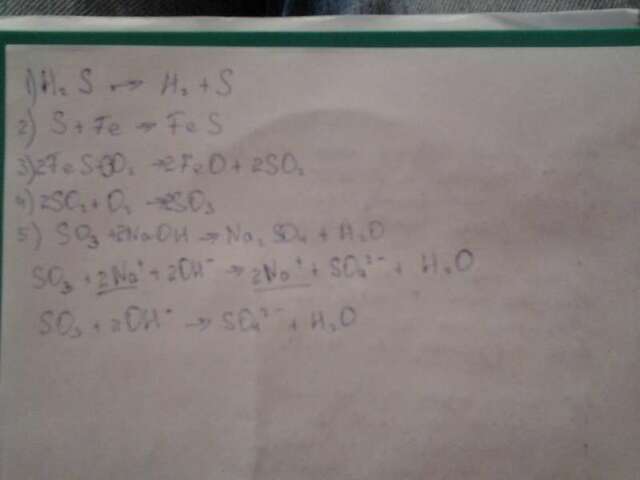 1) H₂S → H₂ + S
2) S + Fe → FeS
3) 2FeS + 3O₂ → 2FeO + 2SO₂
4) 2SO₂ + O₂ → 2SO₃
5) SO₃ + 2NaOH → Na₂SO₄ + H₂O
SO₃ + 2Na⁺ + 2OH⁻ → 2Na⁺ + SO₄²⁻ + H₂O
SO₃ + 2OH⁻ → SO₄²⁻ + H₂O